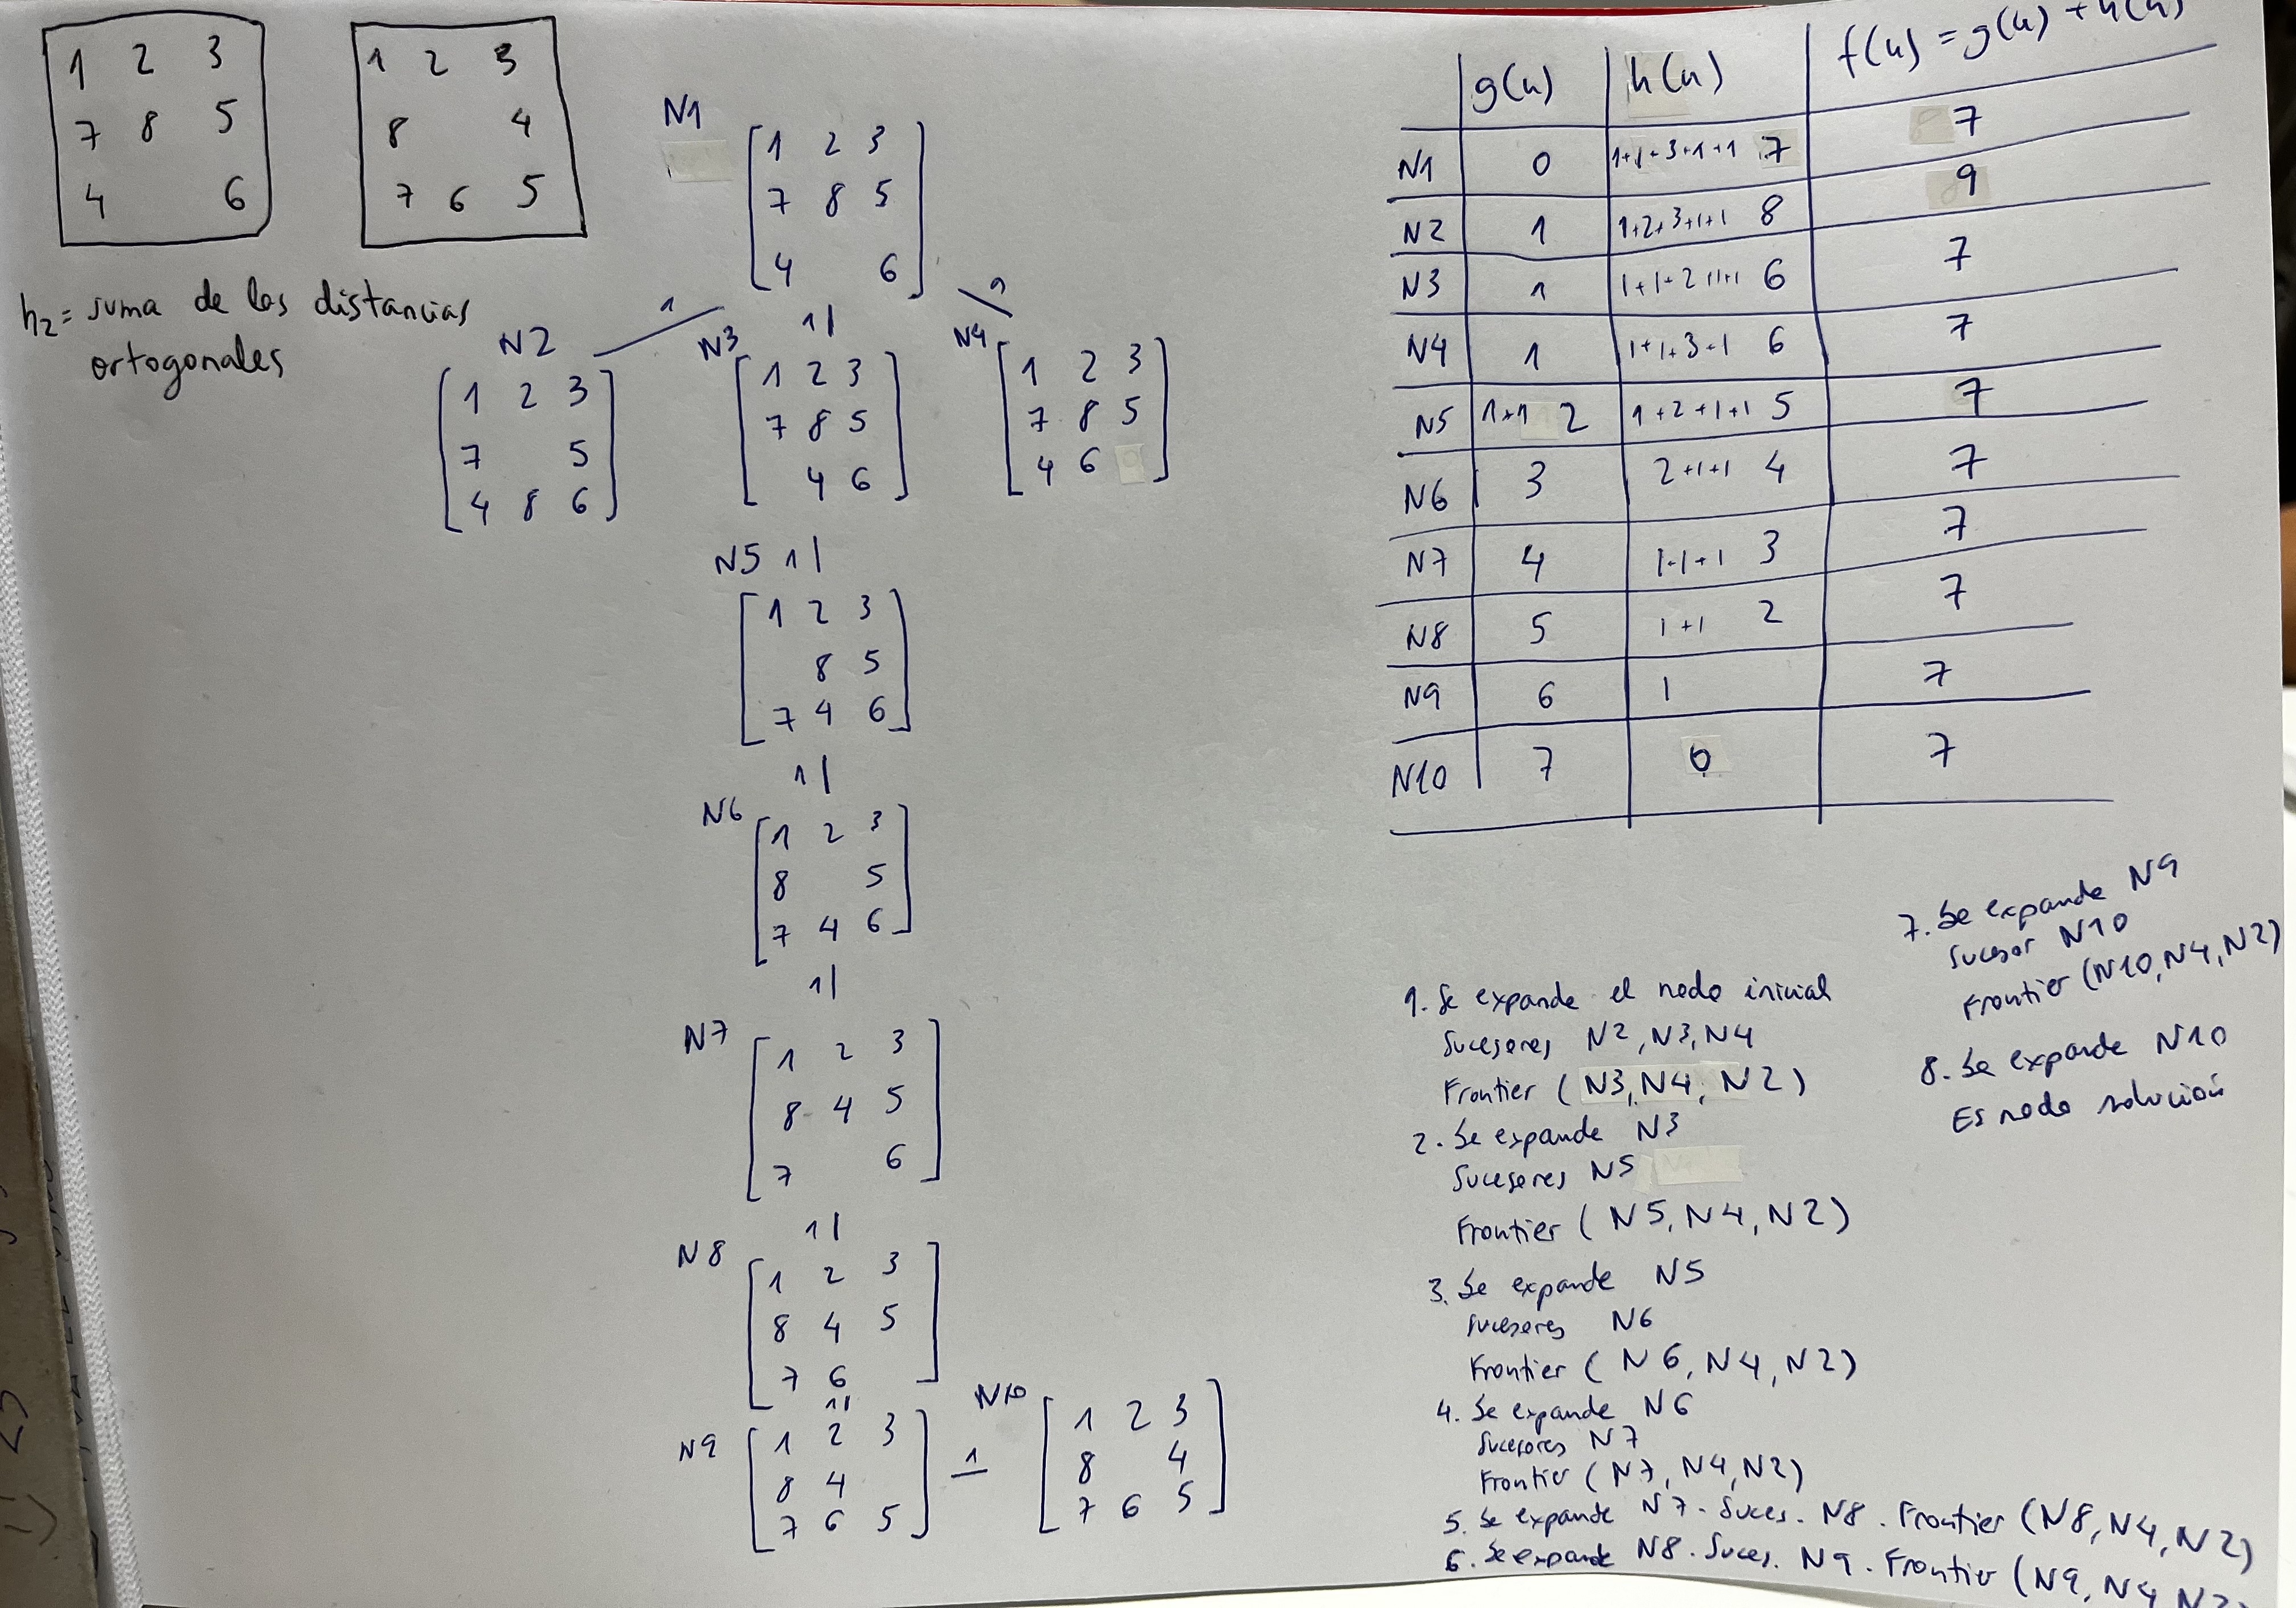 1 2 3
7 8 5
4 6
1 2 3
8 4
7 6 5
h2 = suma de las distancias
ortogonales
N1
1 2 3
7 8 5
4 6
1
1
1
N2
1 2 3
7 5
4 8 6
N3
1 2 3
7 8 5
4 6
N4
1 2 3
7 8 5
4 6
N5 1
1 2 3
8 5
7 4 6
1
N6
1 2 3
8 5
7 4 6
1
N7
1 2 3
8 4 5
7 6
1
N8
1 2 3
8 4 5
7 6
1
N9
1 2 3
8 4
7 6 5
1
N10
1 2 3
8 4
7 6 5
g(n) h(n) f(n) = g(n) + h(n)
N1 0 1+1+3+1+1 7 7
N2 1 1+2+3+1+1 8 9
N3 1 1+1+2+1+1 6 7
N4 1 1+1+3+1 6 7
N5 1+1 2 1+2+1+1 5 7
N6 3 2+1+1 4 7
N7 4 1+1+1 3 7
N8 5 1+1 2 7
N9 6 1 7
N10 7 0 7
1. Se expande el nodo inicial
Sucesores N2, N3, N4
Frontier (N3, N4, N2)
2. Se expande N3
Sucesores N5
Frontier (N5, N4, N2)
3. Se expande N5
Sucesores N6
Frontier (N6, N4, N2)
4. Se expande N6
Sucesores N7
Frontier (N7, N4, N2)
5. Se expande N7. Suces. N8. Frontier (N8, N4, N2)
6. Se expande N8. Suces. N9. Frontier (N9, N4, N2)
7. Se expande N9
Sucesor N10
Frontier (N10, N4, N2)
8. Se expande N10
Es nodo solución